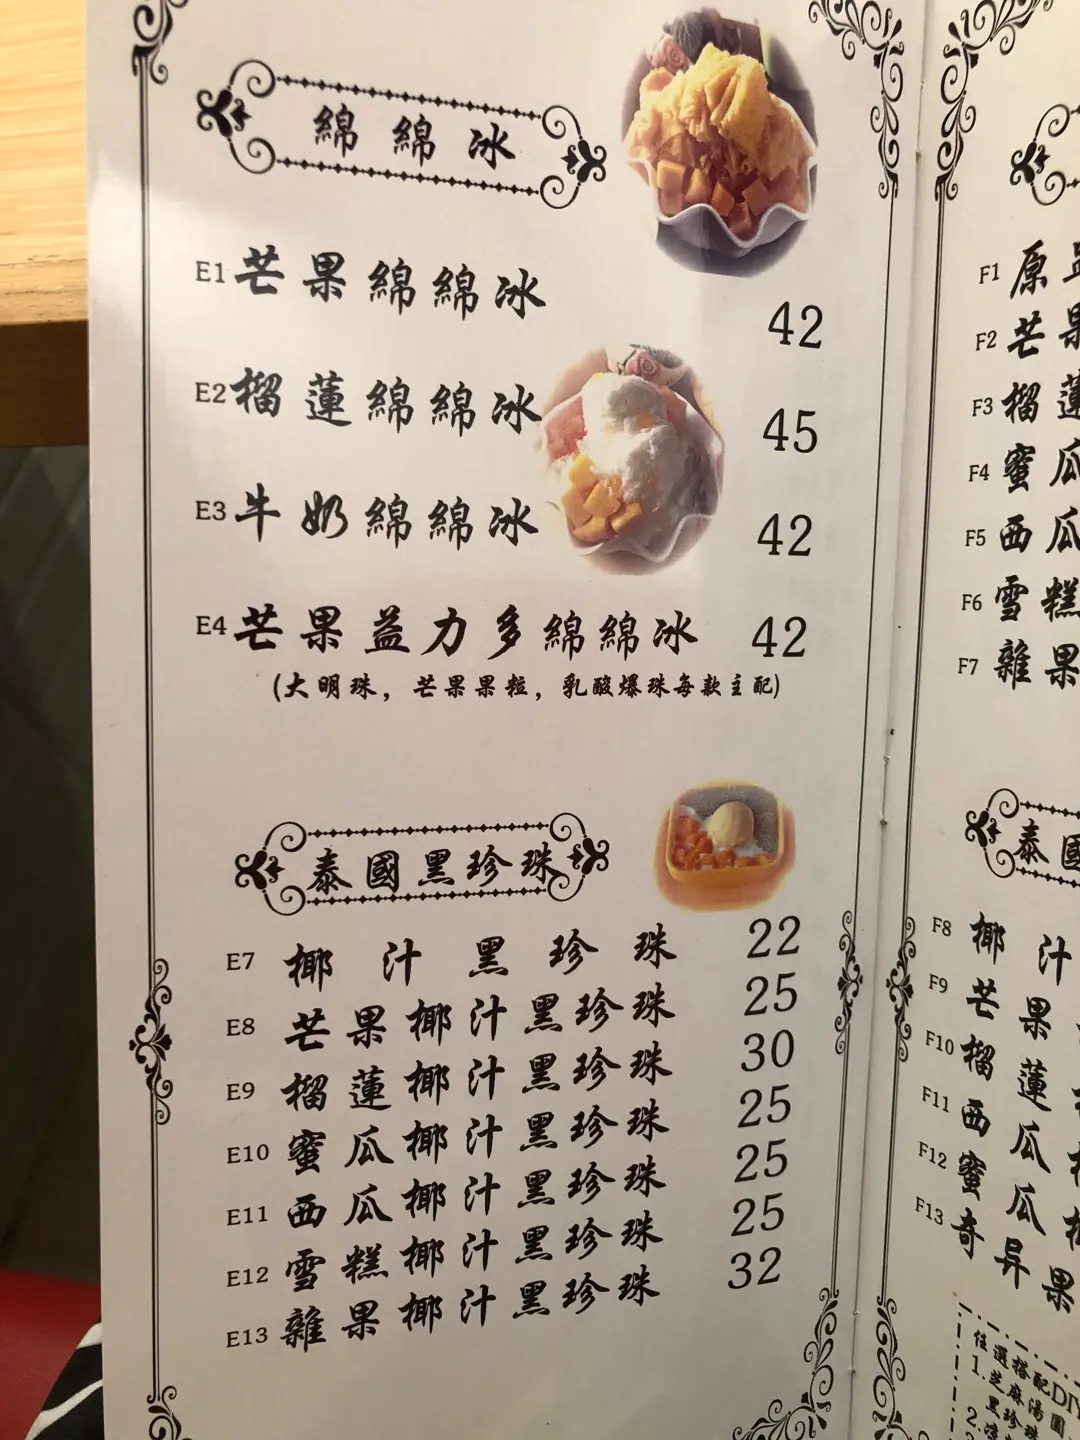 綿綿冰
E1 芒果綿綿冰 42
E2 榴蓮綿綿冰 45
E3 牛奶綿綿冰 42
E4 芒果益力多綿綿冰 42
(大明珠，芒果果粒，乳酸爆珠每款主配)
泰國黑珍珠
E7 椰汁黑珍珠 22
E8 芒果椰汁黑珍珠 25
E9 榴蓮椰汁黑珍珠 30
E10 蜜瓜椰汁黑珍珠 25
E11 西瓜椰汁黑珍珠 25
E12 雪糕椰汁黑珍珠 25
E13 雜果椰汁黑珍珠 32
F1 原
F2 芒果
F3 榴蓮
F4 蜜瓜
F5 西瓜
F6 雪糕
F7 雜果
泰國
F8 椰汁
F9 芒果
F10 榴蓮
F11 西瓜
F12 蜜瓜
F13 奇異果
任選搭配DIY
1.芝麻湯圓
2.